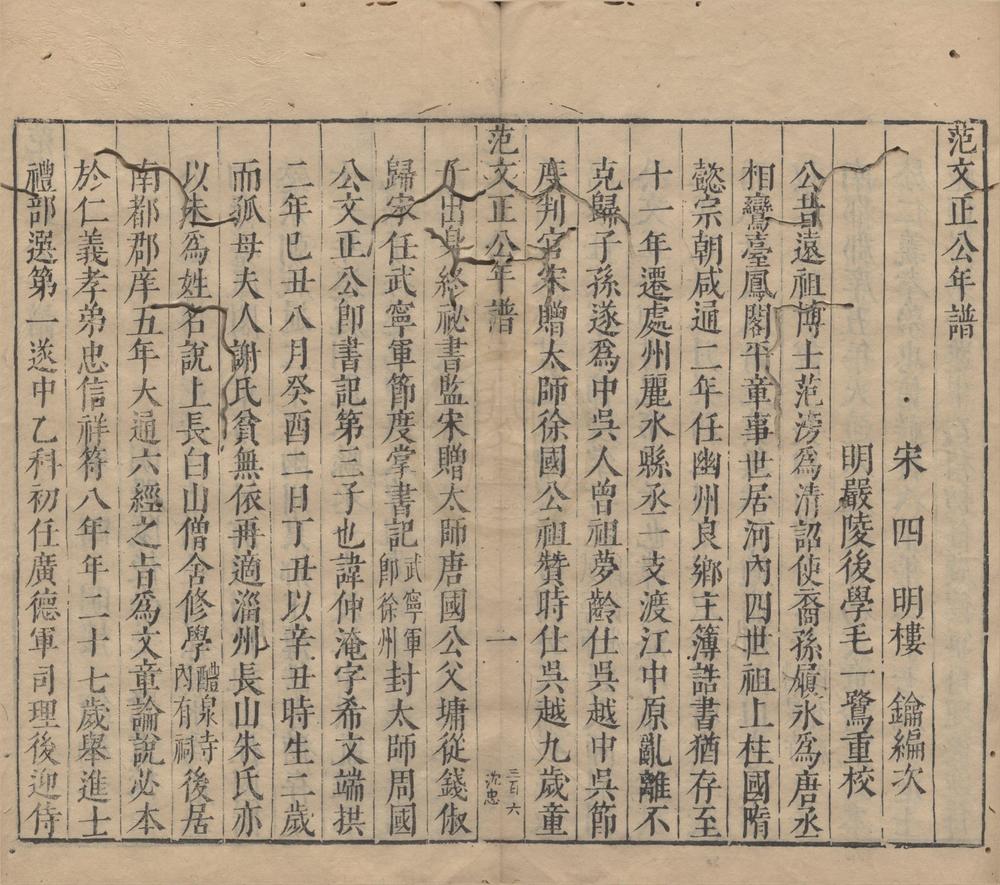 范文正公年譜
宋 四 明 樓 鑰編次
明嚴陵後學毛一鷺重校
公昔遠祖博士范滂爲清詔使裔孫履氷爲唐丞
相鸞臺鳳閣平章事世居河內四世祖上柱國隋
懿宗朝咸通二年任幽州良鄉主簿誥書猶存至
十一年遷處州麗水縣丞一支渡江中原亂離不
克歸子孫遂爲中吳人曾祖夢齡仕吳越中吳節
度判官宋贈太師徐國公祖贊時仕吳越九歲童
范文正公年譜
一
三百六
沈忠
子出身終祕書監宋贈太師唐國公父墉從錢俶
歸宋任武寧軍節度掌書記武寧軍卽徐州封太師周國
公文正公卽書記第三子也諱仲淹字希文端拱
二年己丑八月癸酉二日丁丑以辛丑時生二歲
而孤母夫人謝氏貧無依再適淄州長山朱氏亦
以朱爲姓名說上長白山僧舍修學醴泉寺內有祠後居
南都郡庠五年大通六經之旨爲文章論說必本
於仁義孝弟忠信祥符八年年二十七歲舉進士
禮部選第一遂中乙科初任廣德軍司理後迎侍